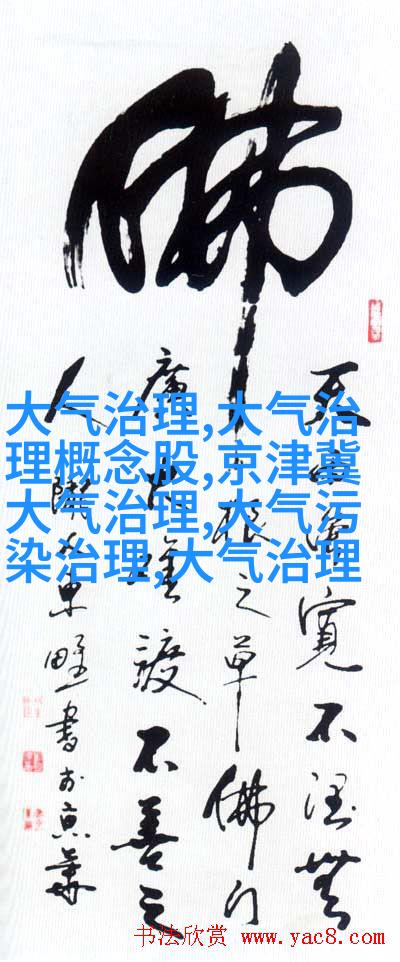 佛
天雨雖寬不潤無
根之草佛门
廣大難渡不善之
人 東野書於京華
大气治理,大气治
理概念股,京津冀
大气治理,大气污
染治理,大气治理
书法欣赏 www.yac8.com